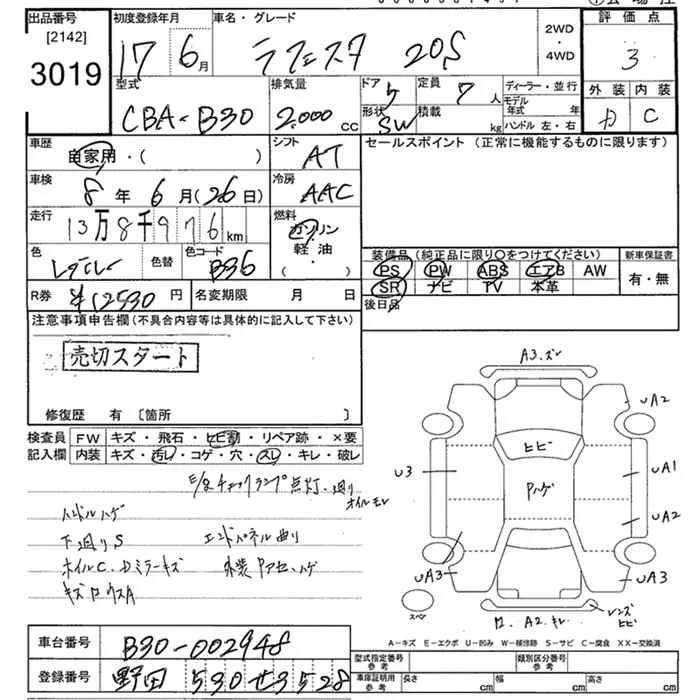 出品番号 初度登録年月 車名・グレード 評価点
[2142]
3019 17 6月 ラフェスタ 20S 2WD・4WD 3
型式 排気量 ドア 5 定員 7人 ディーラー・並行 外装 内装
CBA-B30 2,000 cc 形状 SW 積載 kg モデル年式 年 ハンドル 左・右 D C
車歴 自家用・( ) シフト AT セールスポイント (正常に機能するものに限ります)
車検 8年 6月(26日) 冷房 AAC
走行 13万8千976km 燃料 ガソリン・軽油・( )
色 色替 色コード B36
装備品 (純正品に限り○をつけてください) 新車保証書
PS PW ABS エアB AW 有・無
SR ナビ TV 本革
R券 ¥12530円 名変期限 月 日 後日品
注意事項申告欄(不具合内容等は具体的に記入して下さい)
売切スタート
修復歴 有 〔箇所 〕
検査員記入欄 FW キズ・飛石・ヒビ割・リペア跡・×要
内装 キズ・汚レ・コゲ・穴・スレ・キレ・破レ
E/gチェックランプ点灯・
オイルモレ
ハンドルハゲ
下廻りS エンドパネル曲り
ホイルC・ドミラーキズ 外装Pアセ・ハゲ
A3.ズレ
UA2
ヒビ
U3 Pハゲ UA1
UA2
UA3 UA3
スペア レンズヒビ
A-キズ E-エクボ U-凹み W-補修跡 S-サビ C-腐食 XX-交換済
車台番号 B30-002948
登録番号 野田 530 せ 3528
型式指定番号 参考 類別区分番号 参考
車庫証明用 参考 長さ cm 幅 cm 高さ cm